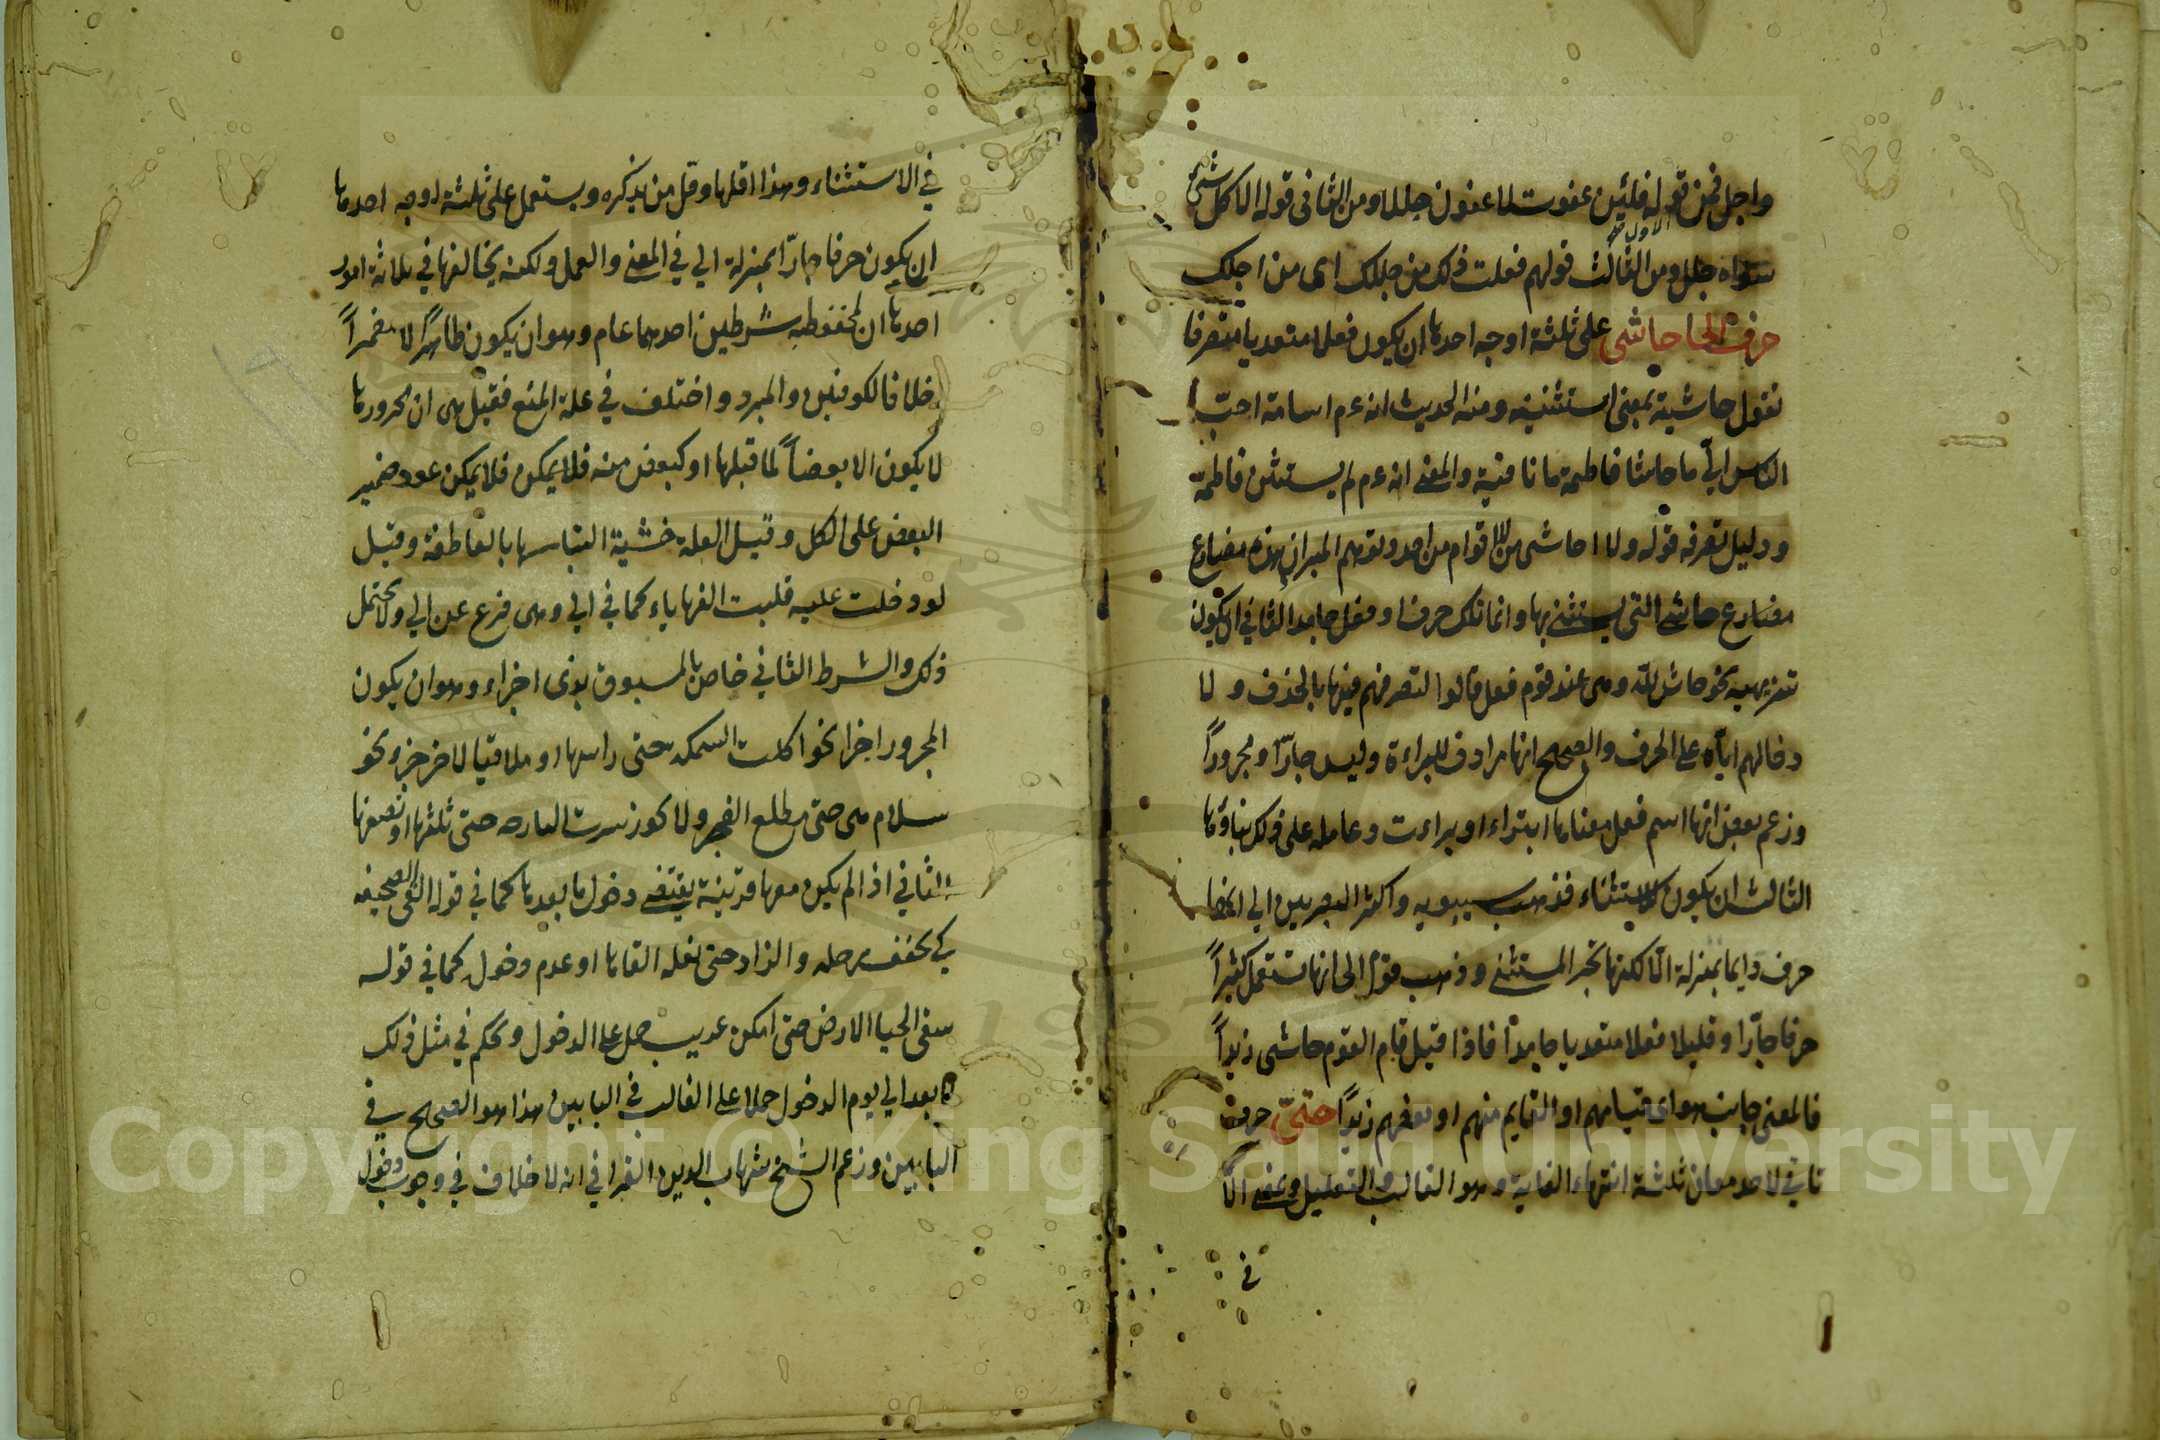 واجل فمن قوله فلئين عفوت لاعفون جللا ومن الثانى قوله الا كل شئ
الاول
سواه جلل ومن الثالث قولهم فعلت ذلك من جللك اى من اجلك
حرف الحا حاشى على ثلثة اوجه احدها ان يكون فعلا متعديا متصرفا
نقول حاشيته بمعنى استثنيته ومنه الحديث انه عم اسامة احبّ
الناس اليّ ما حاشا فاطمة ما نافية والمعنى انه عم لم يستثن فاطمة
ودليل تصرفه قوله ولا احاشى من الاقوام من احد وتوهم المبرد ان هذه مضارع
مضارع حاشى التى يستثنى بها وانما تلك حرف او فعل جامد الثاني ان يكون
تنزيهيه نحو حاش لله وهى عند قوم فعل قالوا لتصرفهم فيها بالحذف ولا
دخالهم اياه على الحرف والصحيح انها مرادف للبراءة وليس جارّا ومجروراً
وزعم بعض انها اسم فعل معناها ابتراء او براءت وحامله على ذلك بناؤها
الثالث ان يكون للاستثناء فذهب سيبويه واكثر البصريين الي انها
حرف دايما بمنزلة الّا لكنها تجر المستثنى وذهب قوم الى انها تستعمل كثيراً
حرفا جارّا وقليلا فعلا متعديا جامدا فاذا قيل قام القوم حاشى زيداً
فالمعنى جانب هو اى قيامهم او القايم منهم او بعضهم زيداً حتىّ حرف
تاتي لاحد معان ثلثة انتهاء الغاية وهو الغالب والتعليل وبمعنى الّا
في
في الاستثناء وهذا اقلها وقل من يذكره ويستعمل على ثلثة اوجه احدها
ان يكون حرفا جارّا بمنزلة الي في المعنى والعمل ولكنه يخالفها في ثلاثة امور
احدها ان لمخفوضه شرطين احدهما عام وهو ان يكون ظاهراً لا مضمراً
خلافا لكوفيين والمبرد واختلف في علة المنع فقيل هى ان مجرورها
لا يكون الا بعضاً لما قبلها او كبعض منه فلا يمكن فلا يمكن عود ضمير
البعض على الكل وقيل العلة خشية التباسها بالعاطفة وقيل
لو دخلت عليه قلبت الفها ياء كما في الي وهى فرع عن الي ولا تحتمل
ذلك والشرط الثاني خاص بالمسبوق بذى اجزاء وهو ان يكون
المجرور اخرا نحو اكلت السمكة حتى راسها او ملاقيا لاخر جزء نحو
سلام هى حتى مطلع الفجر ولا يجوز سرت البارحة حتى ثلثها او نصفها
الثاني اذا لم يكن معها قرينة يقتضى دخول ما بعدها كما في قوله القى الصحيفه
كي يخفف رحله والزاد حتى نعله القاها او عدم دخوله كما في قوله
سقى الحيا الارض حتى امكن عديب حمل على الدخول ويحكم في مثل ذلك
لما بعد الي يوم الدخول حملا على الغالب في البابين هذا هو الصحيح في
البابين وزعم الشيخ شهاب الدين القرافي انه لا خلاف في وجوب دخول
Copyright © King Saud University